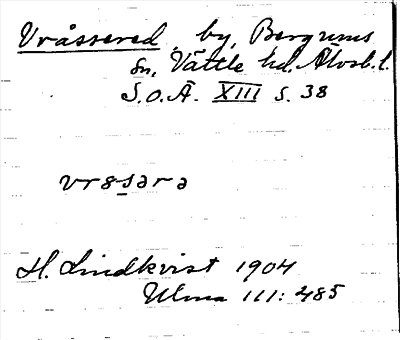 Vråssered, by, Bergums
sn, Vättle hd. Älvsb. l.
S.O.Ä. XIII s. 38
vr8sərə
H. Lindkvist 1904
Ulma 111: 285